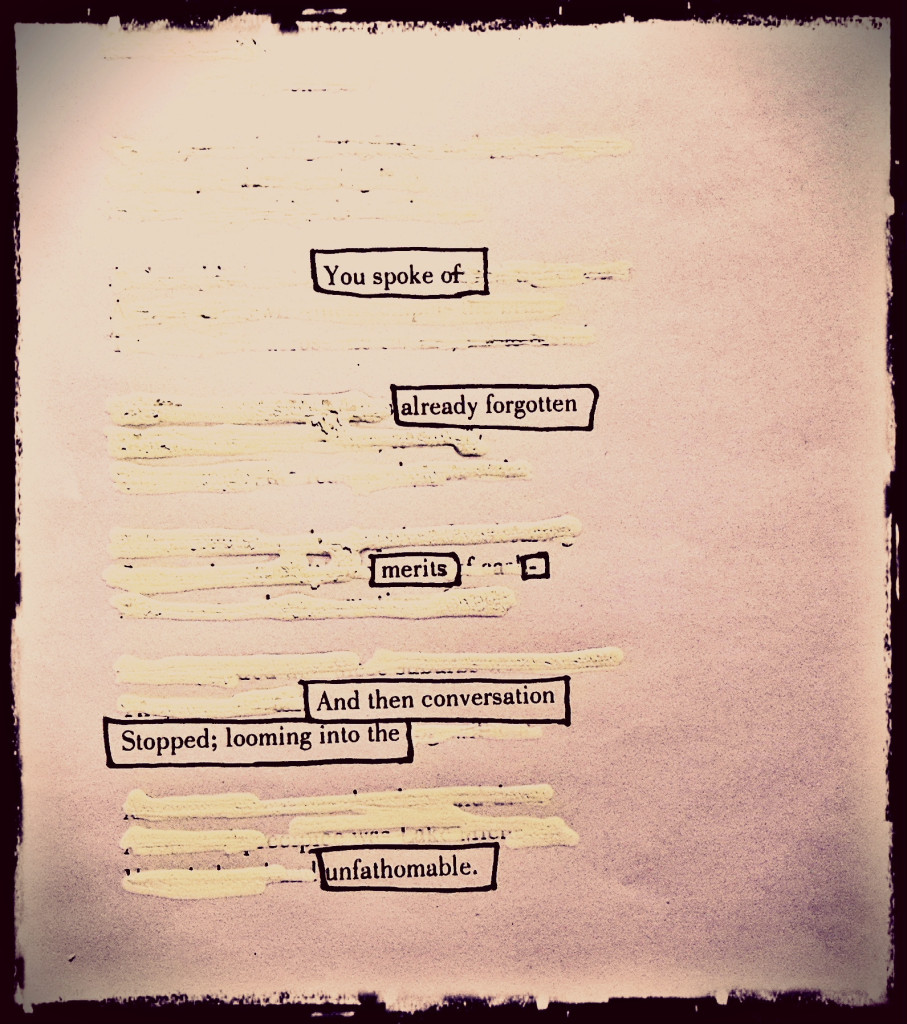 You spoke of
already forgotten
merits -
And then conversation
Stopped; looming into the
unfathomable.